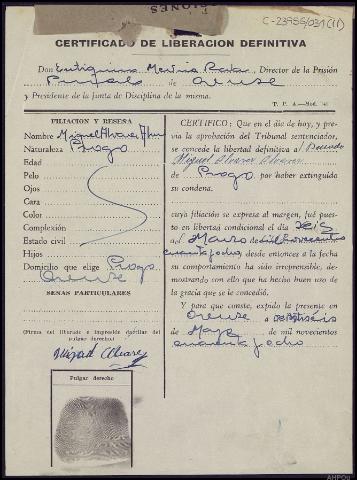 C-23956/031(11)
CERTIFICADO DE LIBERACION DEFINITIVA
Don Director de la Prisión
de Orense
y Presidente de la Junta de Disciplina de la misma.
T. P. A.—Mod.
FILIACION Y RESEÑA
Nombre Miguel Alvarez
Naturaleza Progo
Edad
Pelo
Ojos
Cara
Color
Complexión
Estado civil
Hijos
Domicilio que elige Progo
Orense
SEÑAS PARTICULARES
(Firma del libertado e impresión dactilar del pulgar derecho)
Miguel Alvarez
Pulgar derecho
CERTIFICO: Que en el día de hoy, y previa la aprobación del Tribunal sentenciador, se concede la libertad definitiva al Penado
Miguel Alvarez Alvarez
de Progo por haber extinguido su condena.
cuya filiación se expresa al margen, fué puesto en libertad condicional el día seis
de Marzo de mil novecientos
cuarenta y ocho y desde entonces a la fecha
su comportamiento ha sido irreprensible, demostrando con ello que ha hecho buen uso de
la gracia que se le concedió.
Y para que conste, expido la presente en
Orense a
de Mayo de mil novecientos
cuarenta y ocho
AHPOu